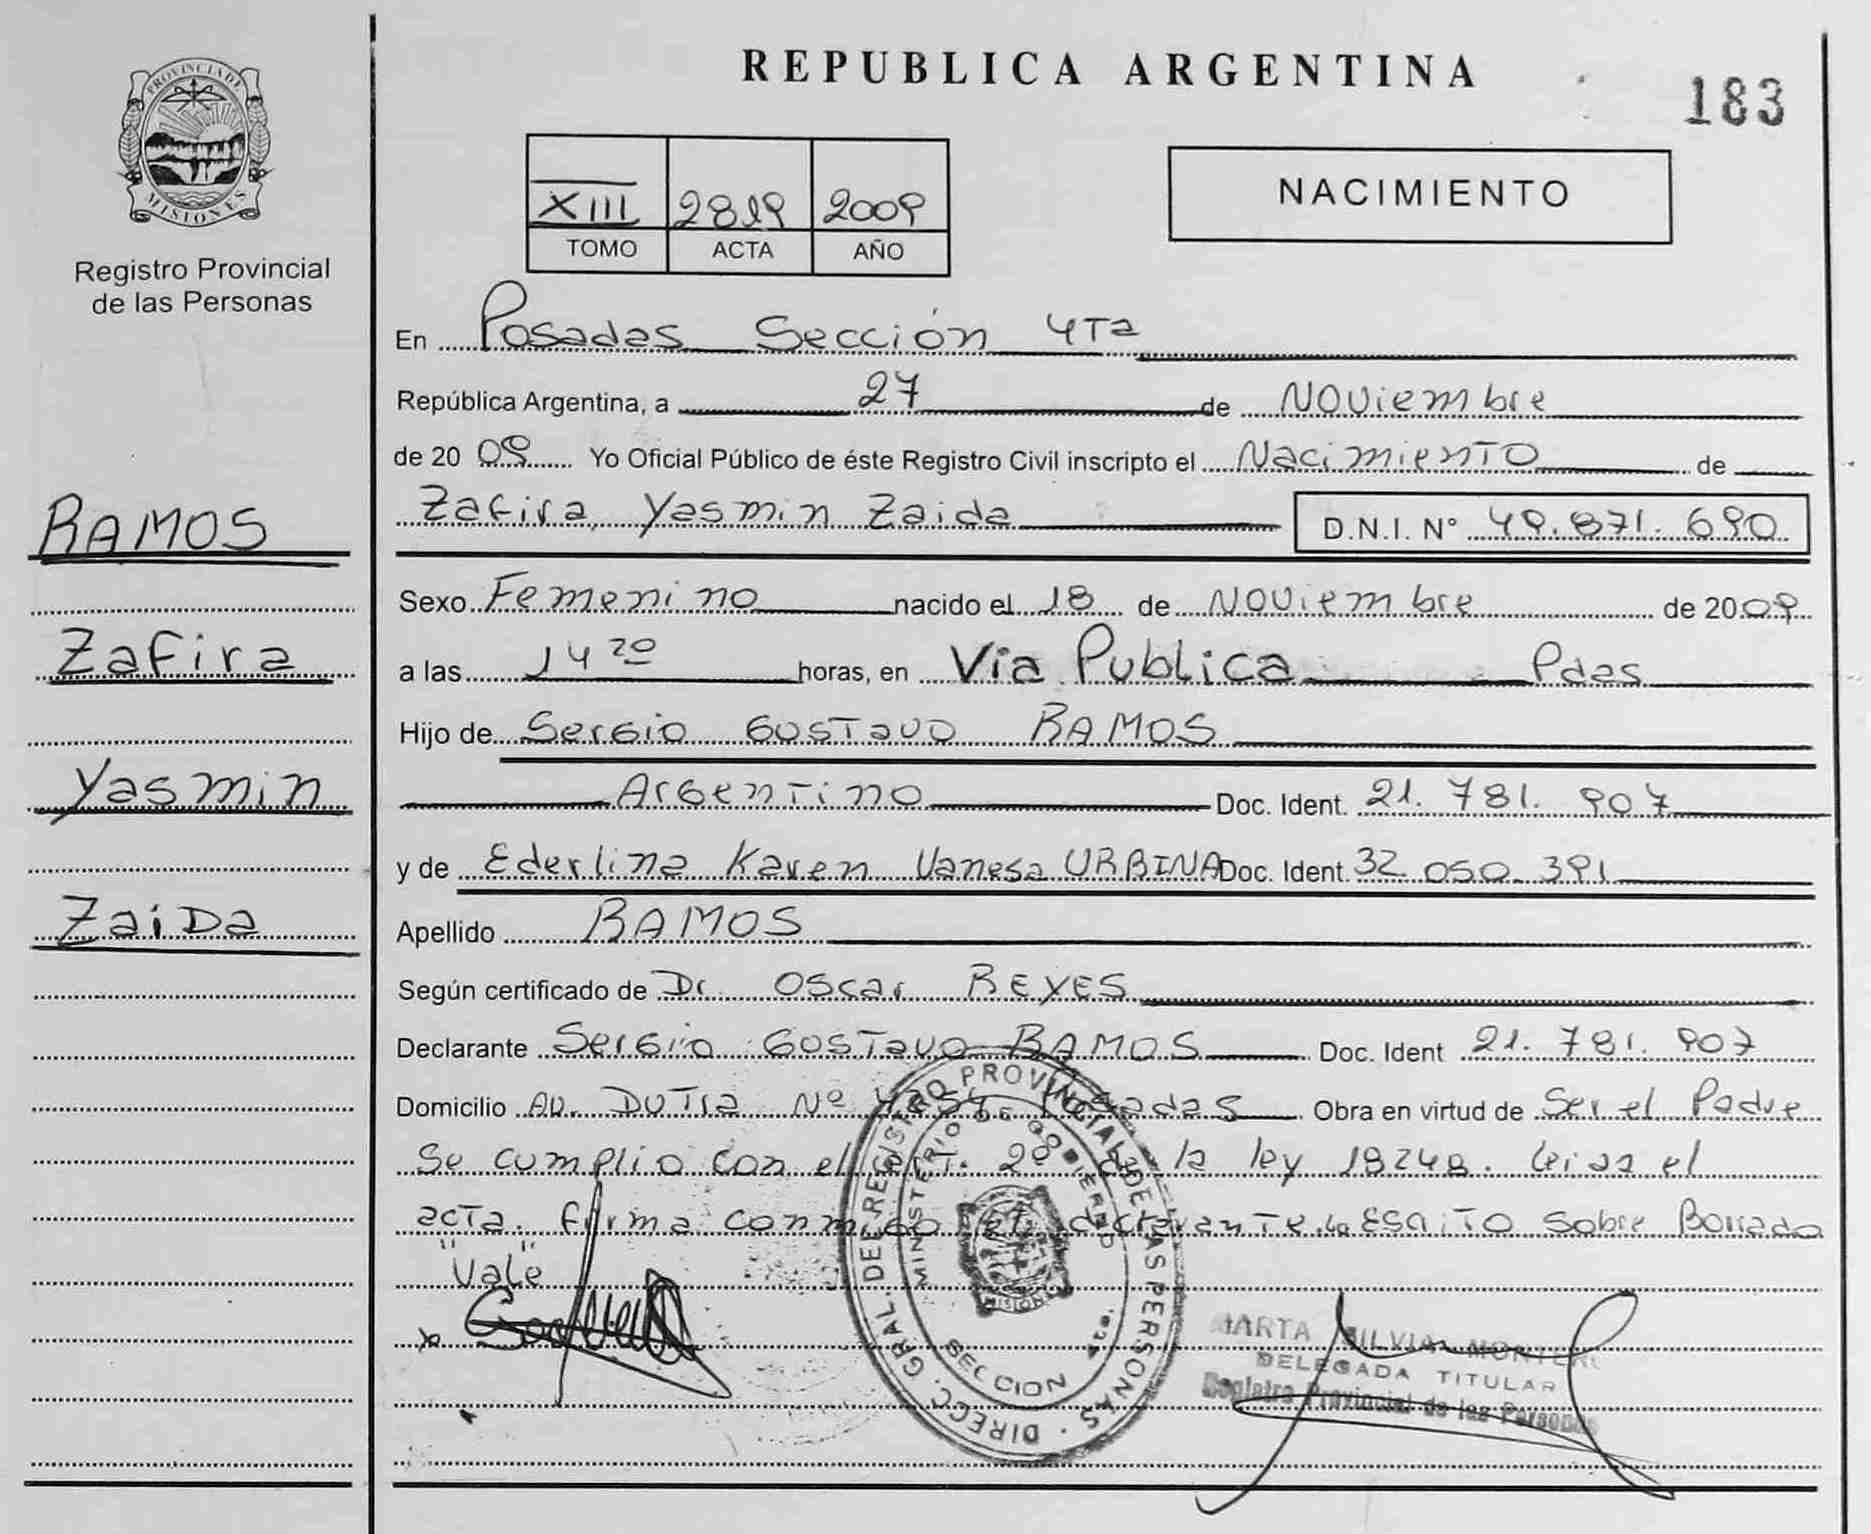 REPUBLICA ARGENTINA
183
PROVINCIA DE
MISIONES
Registro Provincial
de las Personas
XIII 2819 2009
TOMO ACTA AÑO
NACIMIENTO
En Posadas Sección 4Ta
República Argentina, a 27 de Noviembre
de 20 09 Yo Oficial Público de éste Registro Civil inscripto el Nacimiento de
Zafira Yasmin Zaida D.N.I. N° 49.871.690
RAMOS
Zafira
Yasmin
Zaida
Sexo Femenino nacido el 18 de Noviembre de 2009
a las 14 20 horas, en Via Publica Pdas
Hijo de Sergio Gustavo RAMOS
Argentino Doc. Ident. 21.781.907
y de Ederlina Karen Vanesa URBINA Doc. Ident. 32.050.391
Apellido RAMOS
Según certificado de Dr. Oscar REYES
Declarante Sergio Gustavo RAMOS Doc. Ident 21.781.907
Domicilio Av. Dutra Nº Posadas Obra en virtud de Ser el Padre
Se cumplio con el art. 2º de la ley 18248. leida el
acta. firma conmigo el declarante. Lo Escrito Sobre Borrado
"Vale"
DIRECC. GRAL. DE REGISTRO PROVINCIAL DE LAS PERSONAS
MINISTERIO DE GOBIERNO
MISIONES
SECCION 4ta.
MARTA SILVIA
DELEGADA TITULAR
Registro Provincial de las Personas